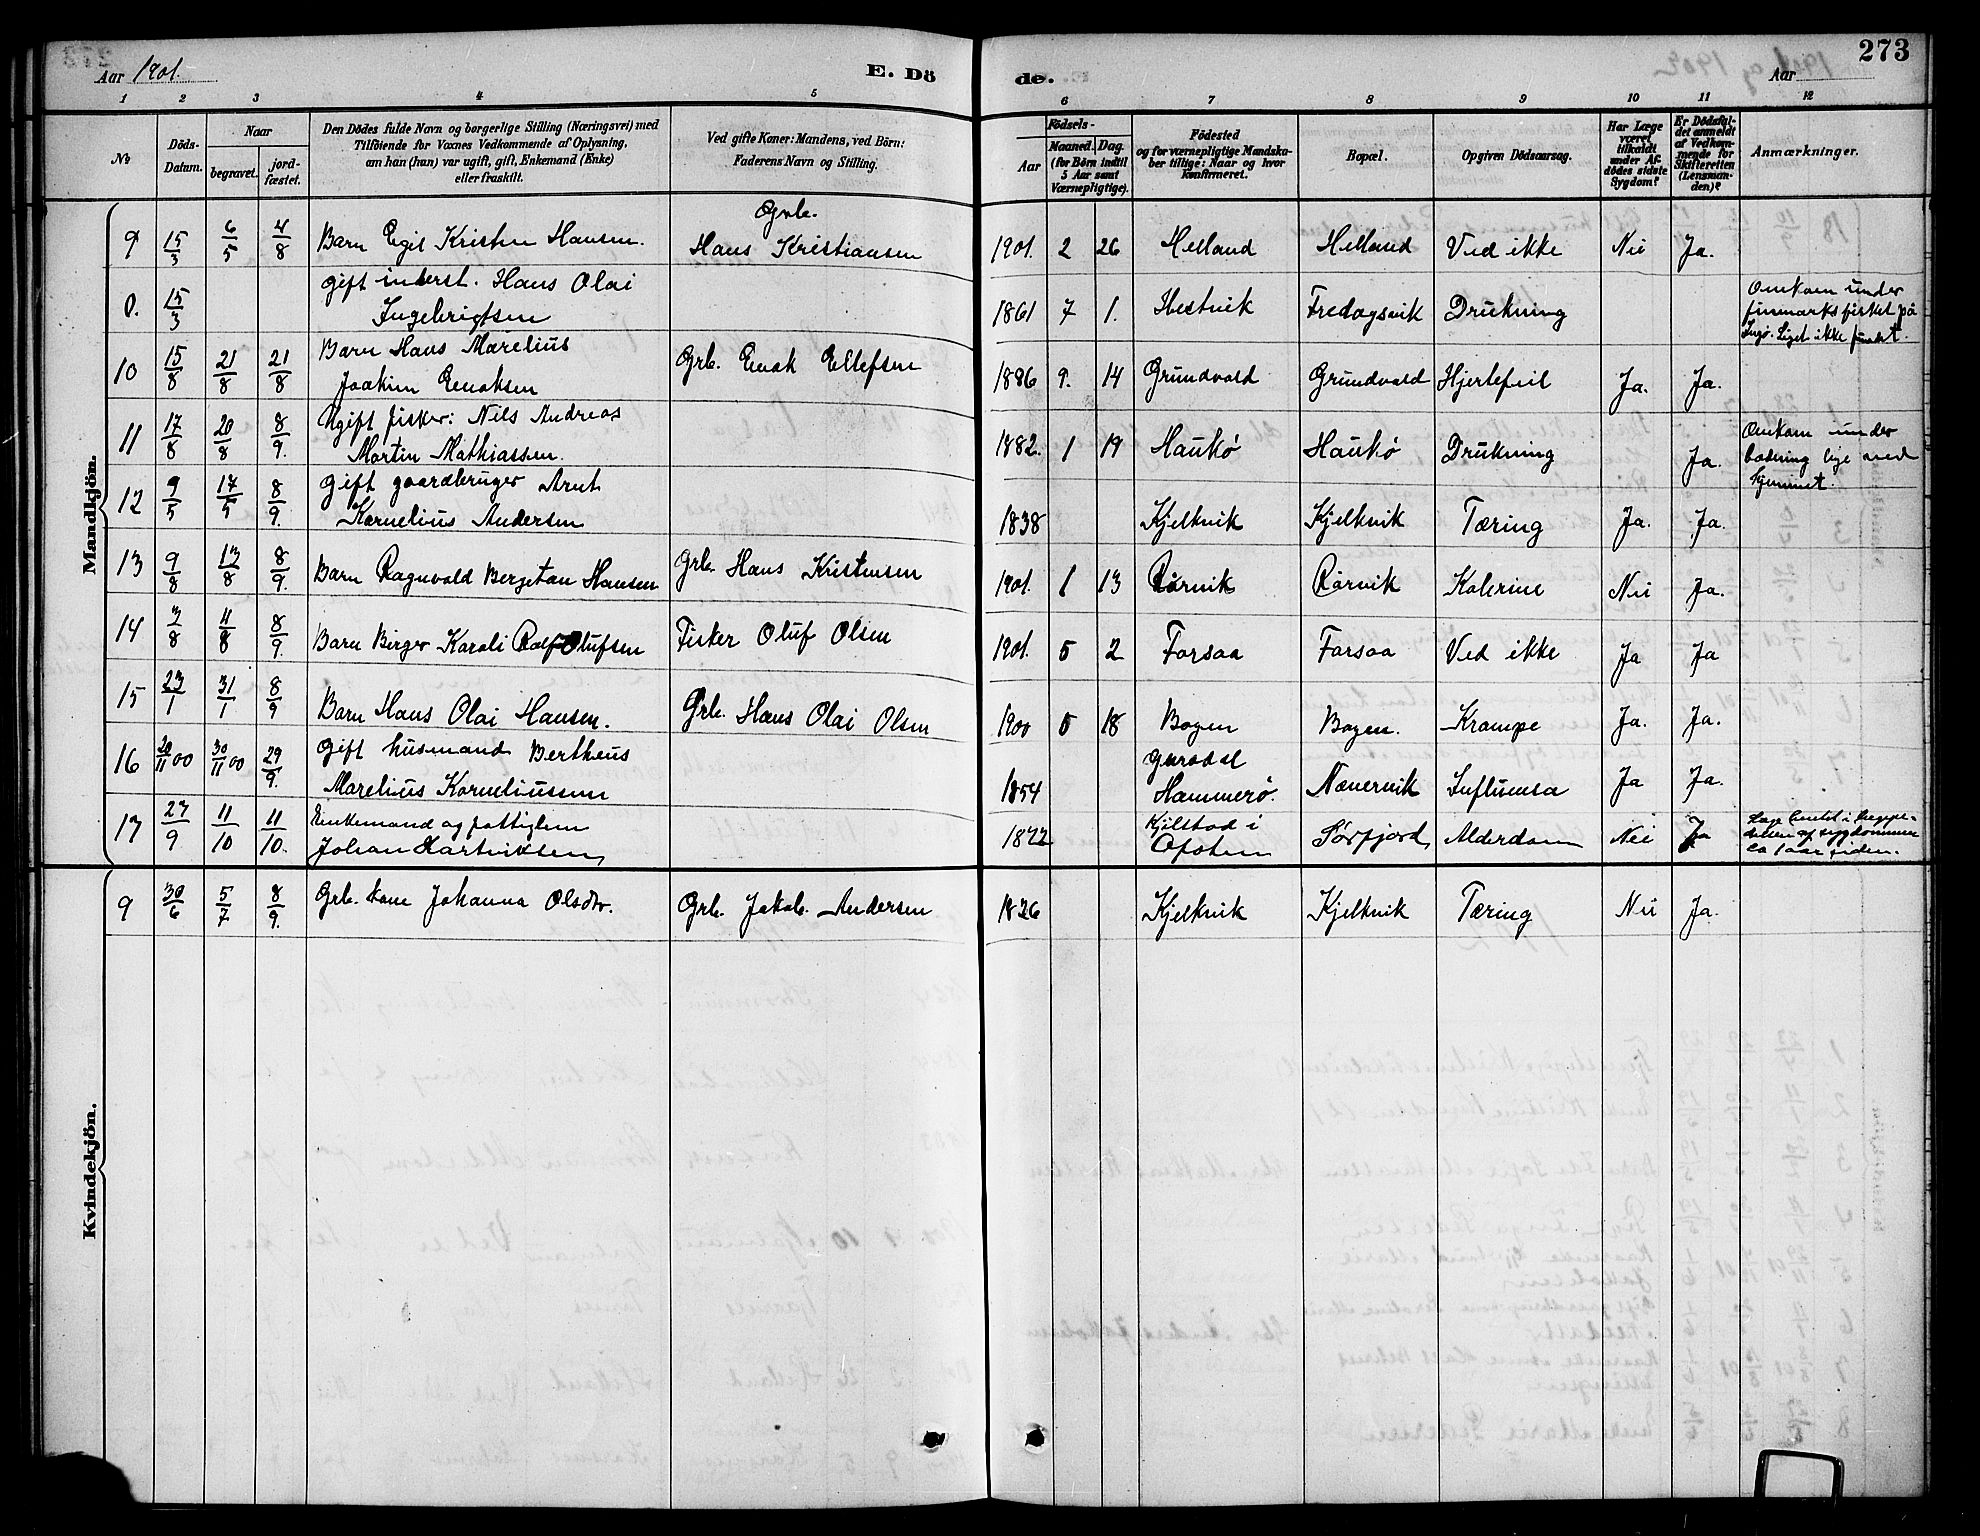 273
Aar 1901.
E. Dö
de.
Aar
1 2 3 4 5 6 7 8 9 10 11 12
No
Döds-Datum.
Naar
begravet.
jord-fæstet.
Den Dödes fulde Navn og borgerlige Stilling (Næringsvei) med
Tilföiende for Voxnes Vedkommende af Oplysning,
om han (hun) var ugift, gift, Enkemand (Enke)
eller fraskilt.
Ved gifte Koner: Mandens, ved Börn:
Faderens Navn og Stilling.
Födsels-
Aar
Maaned. Dag.
(for Börn indtil
5 Aar samt
Værnepligtige).
Födested
og for værnepligtige Mandska-
ber tillige: Naar og hvor
Konfirmeret.
Bopæl.
Opgiven Dödsaarsag.
Har Læge
været
tilkaldt
under Af-
dödes sidste
Sygdom?
Er Dödsfal-
det anmeldt
af Vedkom-
mende for
Skifteretten
(Lensman-
den)?
Anmærkninger.
Mandkjön.
9 15/3 6/5 4/8 Barn Egil Kristen Hansen. Grb. Hans Kristiansen 1901. 2 26 Helland Helland Ved ikke Nei Ja.
0. 15/3 gift inderst. Hans Olai
Ingebrigtsen 1861 7 1. Hestvik Fredagsvik Drukning Omkom under
finmarksfisket på
Ingø. Liget ikke fundet.
10 15/8 21/8 21/8 Barn Hans Marelius
Joakim Enoksen Grb. Enok Ellefsen 1886 9. 14 Grundvald Grundvald Hjertefeil Ja. Ja.
11 17/8 20/8 8/9. Ugift fisker: Nils Andreas
Martin Mathiassen. 1882. 1 19 Haukø Haukø Drukning Ja. Omkom under
badning lige ved
hjemmet.
12 9/5 17/5 8/9. Gift gaardbruger Arnt
Kornelius Andersen 1838 Kjelkvik Kjelkvik Tæring Ja. Ja.
13 9/8 13/8 8/9. Barn Ragnvald Bergetan Hansen Grb. Hans Kristensen 1901. 1 13 Rørvik Rørvik Kolerine Nei Ja.
14 3/8 11/8 8/9. Barn Birger Karoli Rolf Olufsen Fisker Oluf Olsen 1901. 5 2 Forsaa Forsaa Ved ikke Ja Ja
15 23/1 31/1 8/9 Barn Hans Olai Hansen. Grb. Hans Olai Olsen 1900 5 18 Bogen Bogen. Krampe Ja. Ja.
16 20/11 00 30/11 00 29/9. Gift husmand Bertheus
Marelius Korneliussen 1854 Hammerø. Nævervik Influensa Ja Ja.
17 27/9 11/10 11/10. Enkemand og fattiglem
Johan Hartviksen 1822 Kjelstad i
Ofoten Sørfjord Alderdom Nei Ja
sygdommen
ca 1 aar siden.
Kvindekjön.
9 30/6 5/7 8/9. Grb. kone Johanna Olsdtr. Grb. Jakob Andersen 1836 Kjelkvik Kjelkvik Tæring Nei Ja.